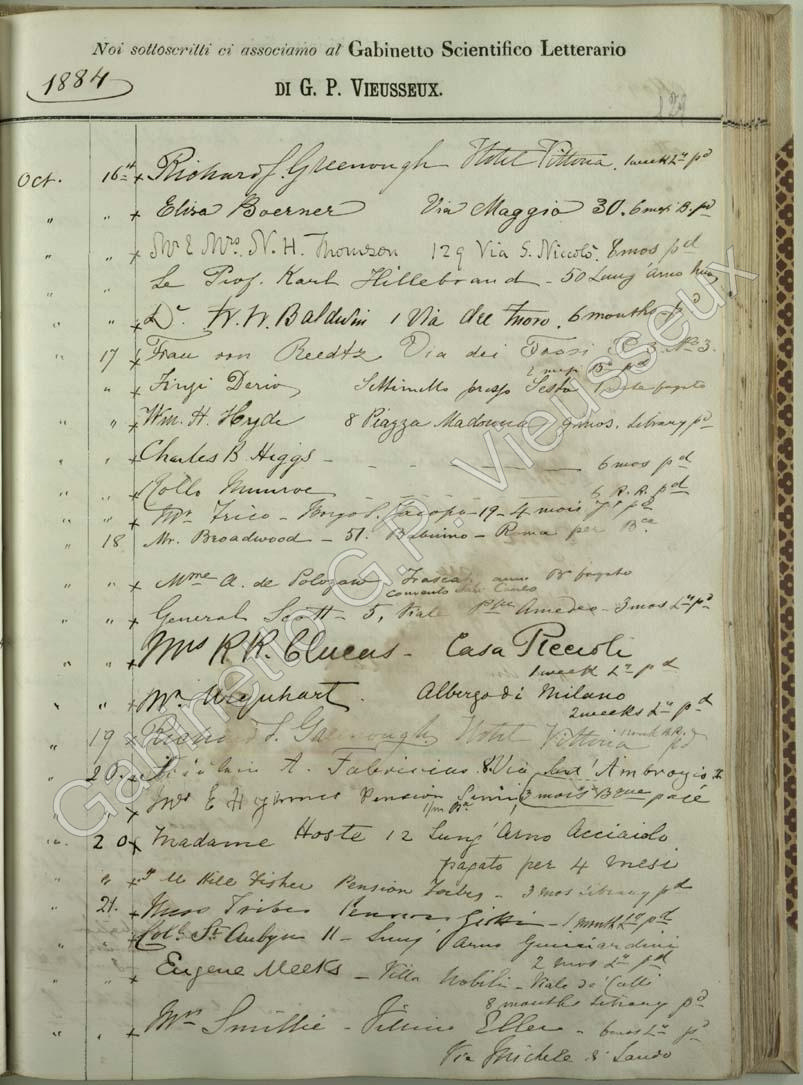 Noi sottoscritti ci associamo al Gabinetto Scientifico Letterario
1884
DI G. P. VIEUSSEUX.
129
Oct. 16th x Richard S. Greenough Hotel Vittoria. 1 week Ly pd
" " x Eliza Boerner Via Maggio 30. 6 mesi B. pd
" " x Mr & Mrs. N. H. Thomson 129 Via S. Niccolò. 6 mos pd
Le Prof. Karl Hillebrand - 50 Lung'Arno
" " x Dr. W. W. Baldwin 1 Via del Moro. 6 months pd
" 17 x Frau von Reedtz Via dei Fossi No 3.
2 mesi Ba pd
" " x Settimello presso Sesto pagato
" " x Wm. H. Hyde 8 Piazza Madonna 9 mos. Library pd
" " x Charles B. Higgs - - - - 6 mos pd
" " x Rollo Munroe - - - R. R. pd
" " x Borgo S. Jacopo - 19 - 4 mois pd
" 18 Mr. Broadwood - 51. Babuino - Roma per
" " x Mme A. de Frascati anno Ba pagato
convento
" " x General Scott - 5, Viale Amedeo - 3 mos Ly pd
" " x Mrs R. R. Clucas - Casa Piccioli
1 week Ly pd
" " x Mr. Urquhart. Albergo di Milano
2 weeks Ly pd
" 19 x Richard S. Greenough Hotel Vittoria pd
" 20. x A. Fabricius 8 Via Sant'Ambrogio
" " x Mrs E Pension 3 mois payé
" 20 x Madame Hoste 12 Lung'Arno Acciaiolo
pagato per 4 mesi
" " x Fisher Pension - 3 mos Library pd
" 21. x Miss - 1 month Ly pd
" " x Coll. St Aubyn 11 - Lung'Arno Guicciardini
2 mos Ly pd
" " x Eugene Meeks - Villa Nobili - Viale de' Colli
8 months Library pd
" " x Mrs Smillie - - 6 mos Ly pd
Via Michele di Lando
Gabinetto G.P. Vieusseux